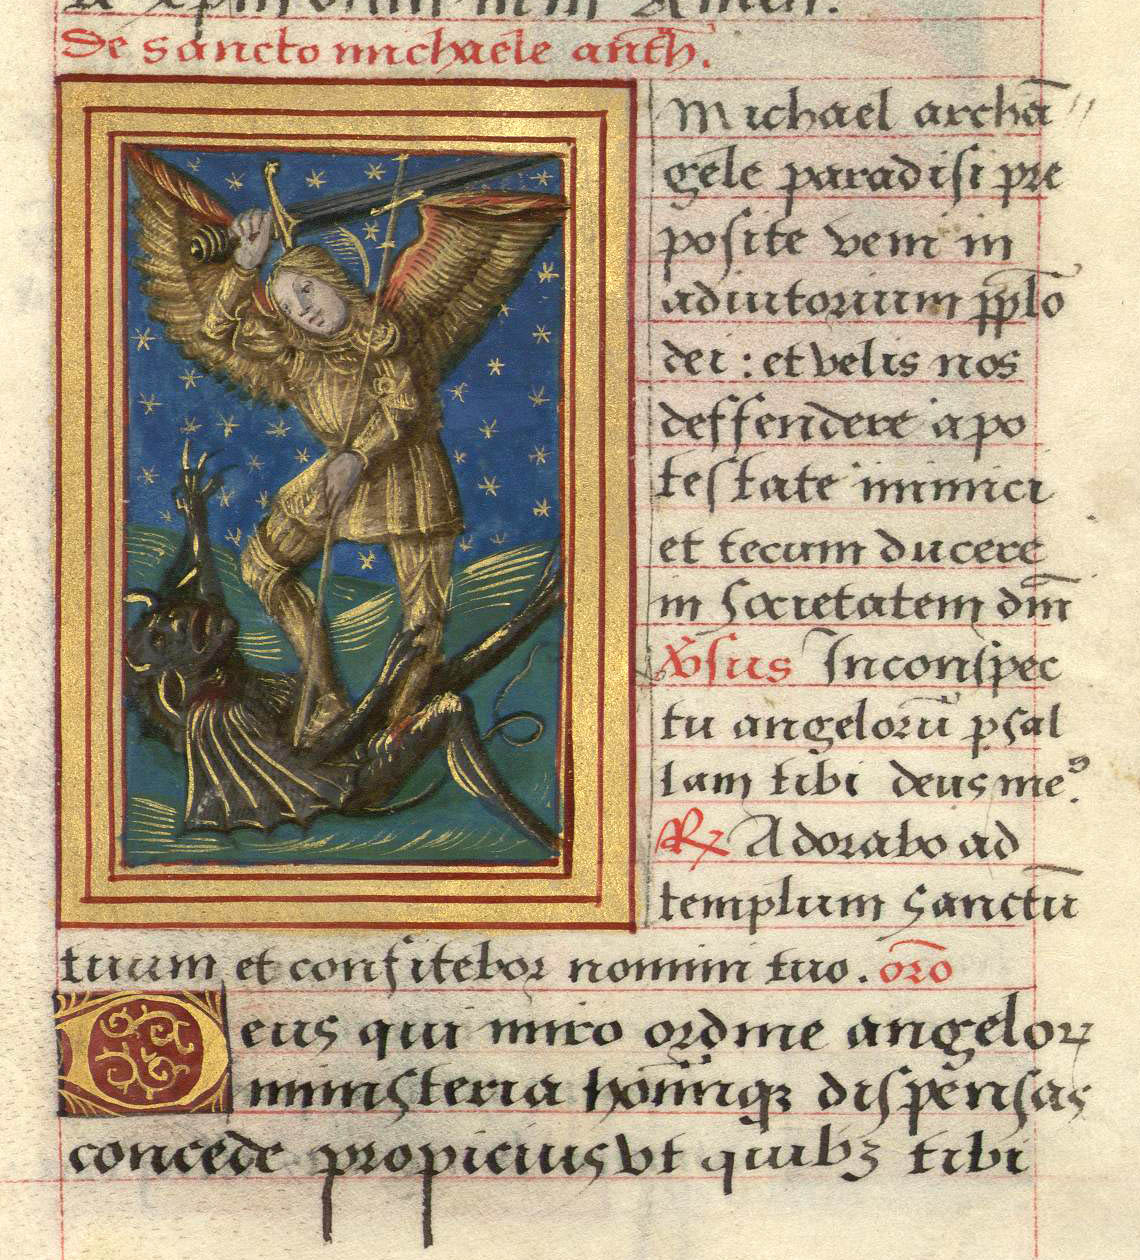 De sancto michaele anth̄.
Michael archā
gele paradisi pre
posite veni in
adiutorium pplo
dei : et velis nos
deffendere a po
testate inimici
et tecum ducere
in societatem dn̄i
V̓sus In conspec
tu angeloꝝ psal
lam tibi deus meꝰ.
℞ Adorabo ad
templum sanctū
tuum et confitebor nomini tuo. or̄o
Deus qui miro ordine angeloꝝ
ministeria hoīmqꝫ dispensas
concede propicius vt quibꝫ tibi